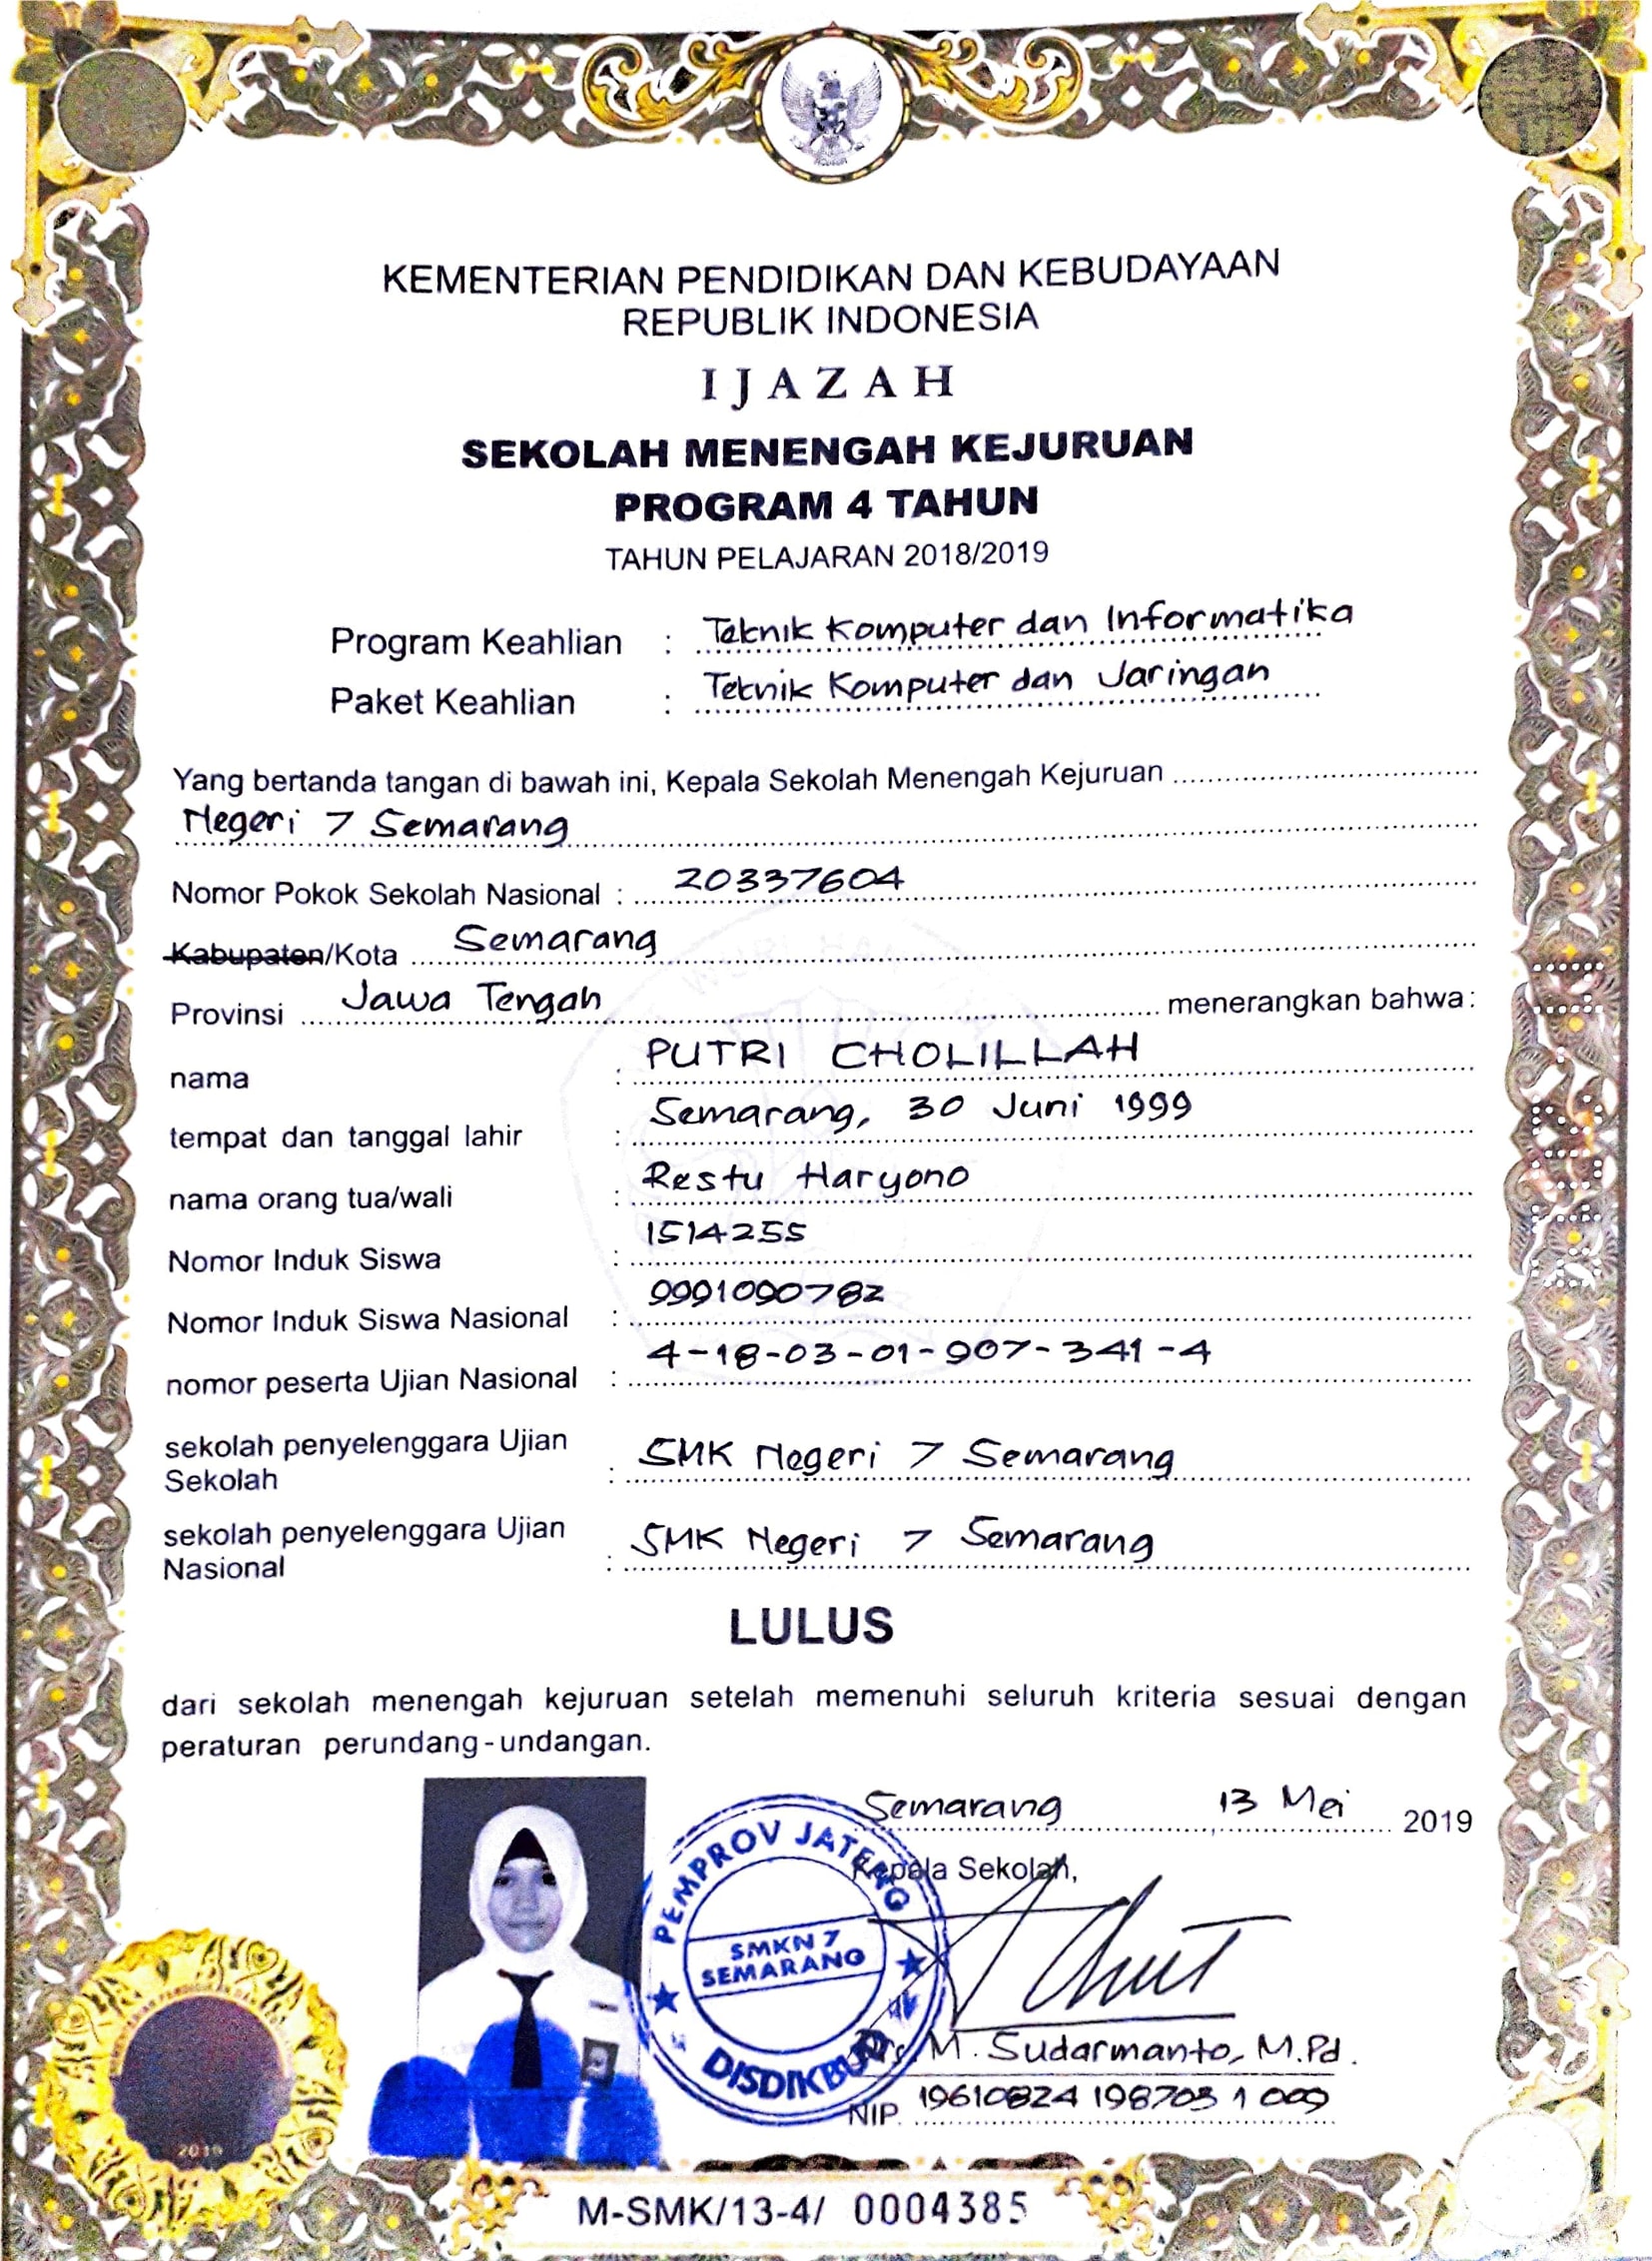 KEMENTERIAN PENDIDIKAN DAN KEBUDAYAAN
REPUBLIK INDONESIA
IJAZAH
SEKOLAH MENENGAH KEJURUAN
PROGRAM 4 TAHUN
TAHUN PELAJARAN 2018/2019
Program Keahlian : Teknik Komputer dan Informatika
Paket Keahlian : Teknik Komputer dan Jaringan
Yang bertanda tangan di bawah ini, Kepala Sekolah Menengah Kejuruan
Negeri 7 Semarang
Nomor Pokok Sekolah Nasional : 20337604
Kabupaten/Kota Semarang
Provinsi Jawa Tengah menerangkan bahwa:
nama : PUTRI CHOLILLAH
tempat dan tanggal lahir : Semarang, 30 Juni 1999
nama orang tua/wali : Restu Haryono
Nomor Induk Siswa : 1514255
Nomor Induk Siswa Nasional : 9991090782
nomor peserta Ujian Nasional : 4-18-03-01-907-341-4
sekolah penyelenggara Ujian
Sekolah : SMK Negeri 7 Semarang
sekolah penyelenggara Ujian
Nasional : SMK Negeri 7 Semarang
LULUS
dari sekolah menengah kejuruan setelah memenuhi seluruh kriteria sesuai dengan
peraturan perundang-undangan.
Semarang, 13 Mei 2019
Kepala Sekolah,
PEMPROV JATENG
SMKN 7
SEMARANG
DISDIKBUD
Drs. M. Sudarmanto, M.Pd.
NIP. 19610824 198703 1 009
2019
M-SMK/13-4/ 0004385